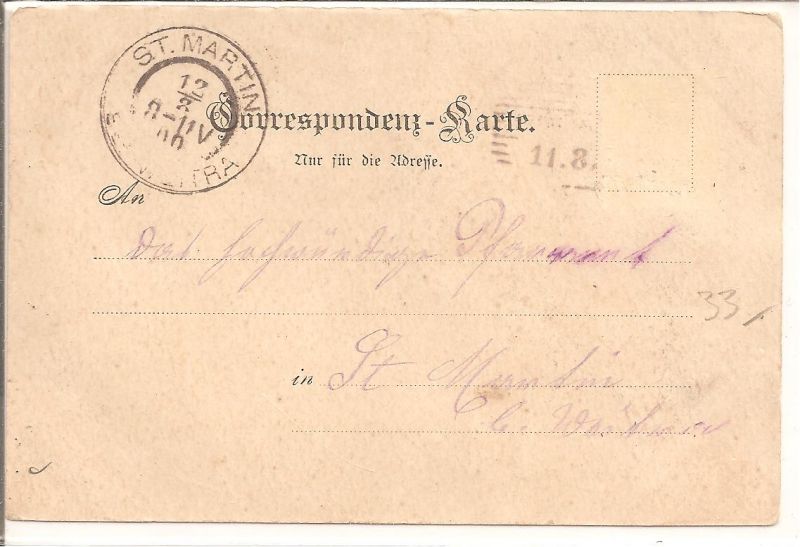 ST. MARTIN
12
8
BEI WEITRA
11.8.
Correspondenz-Karte.
Nur für die Adresse.
An
das hochwürdige Pfarramt
33
in St. Martin
b. Weitra